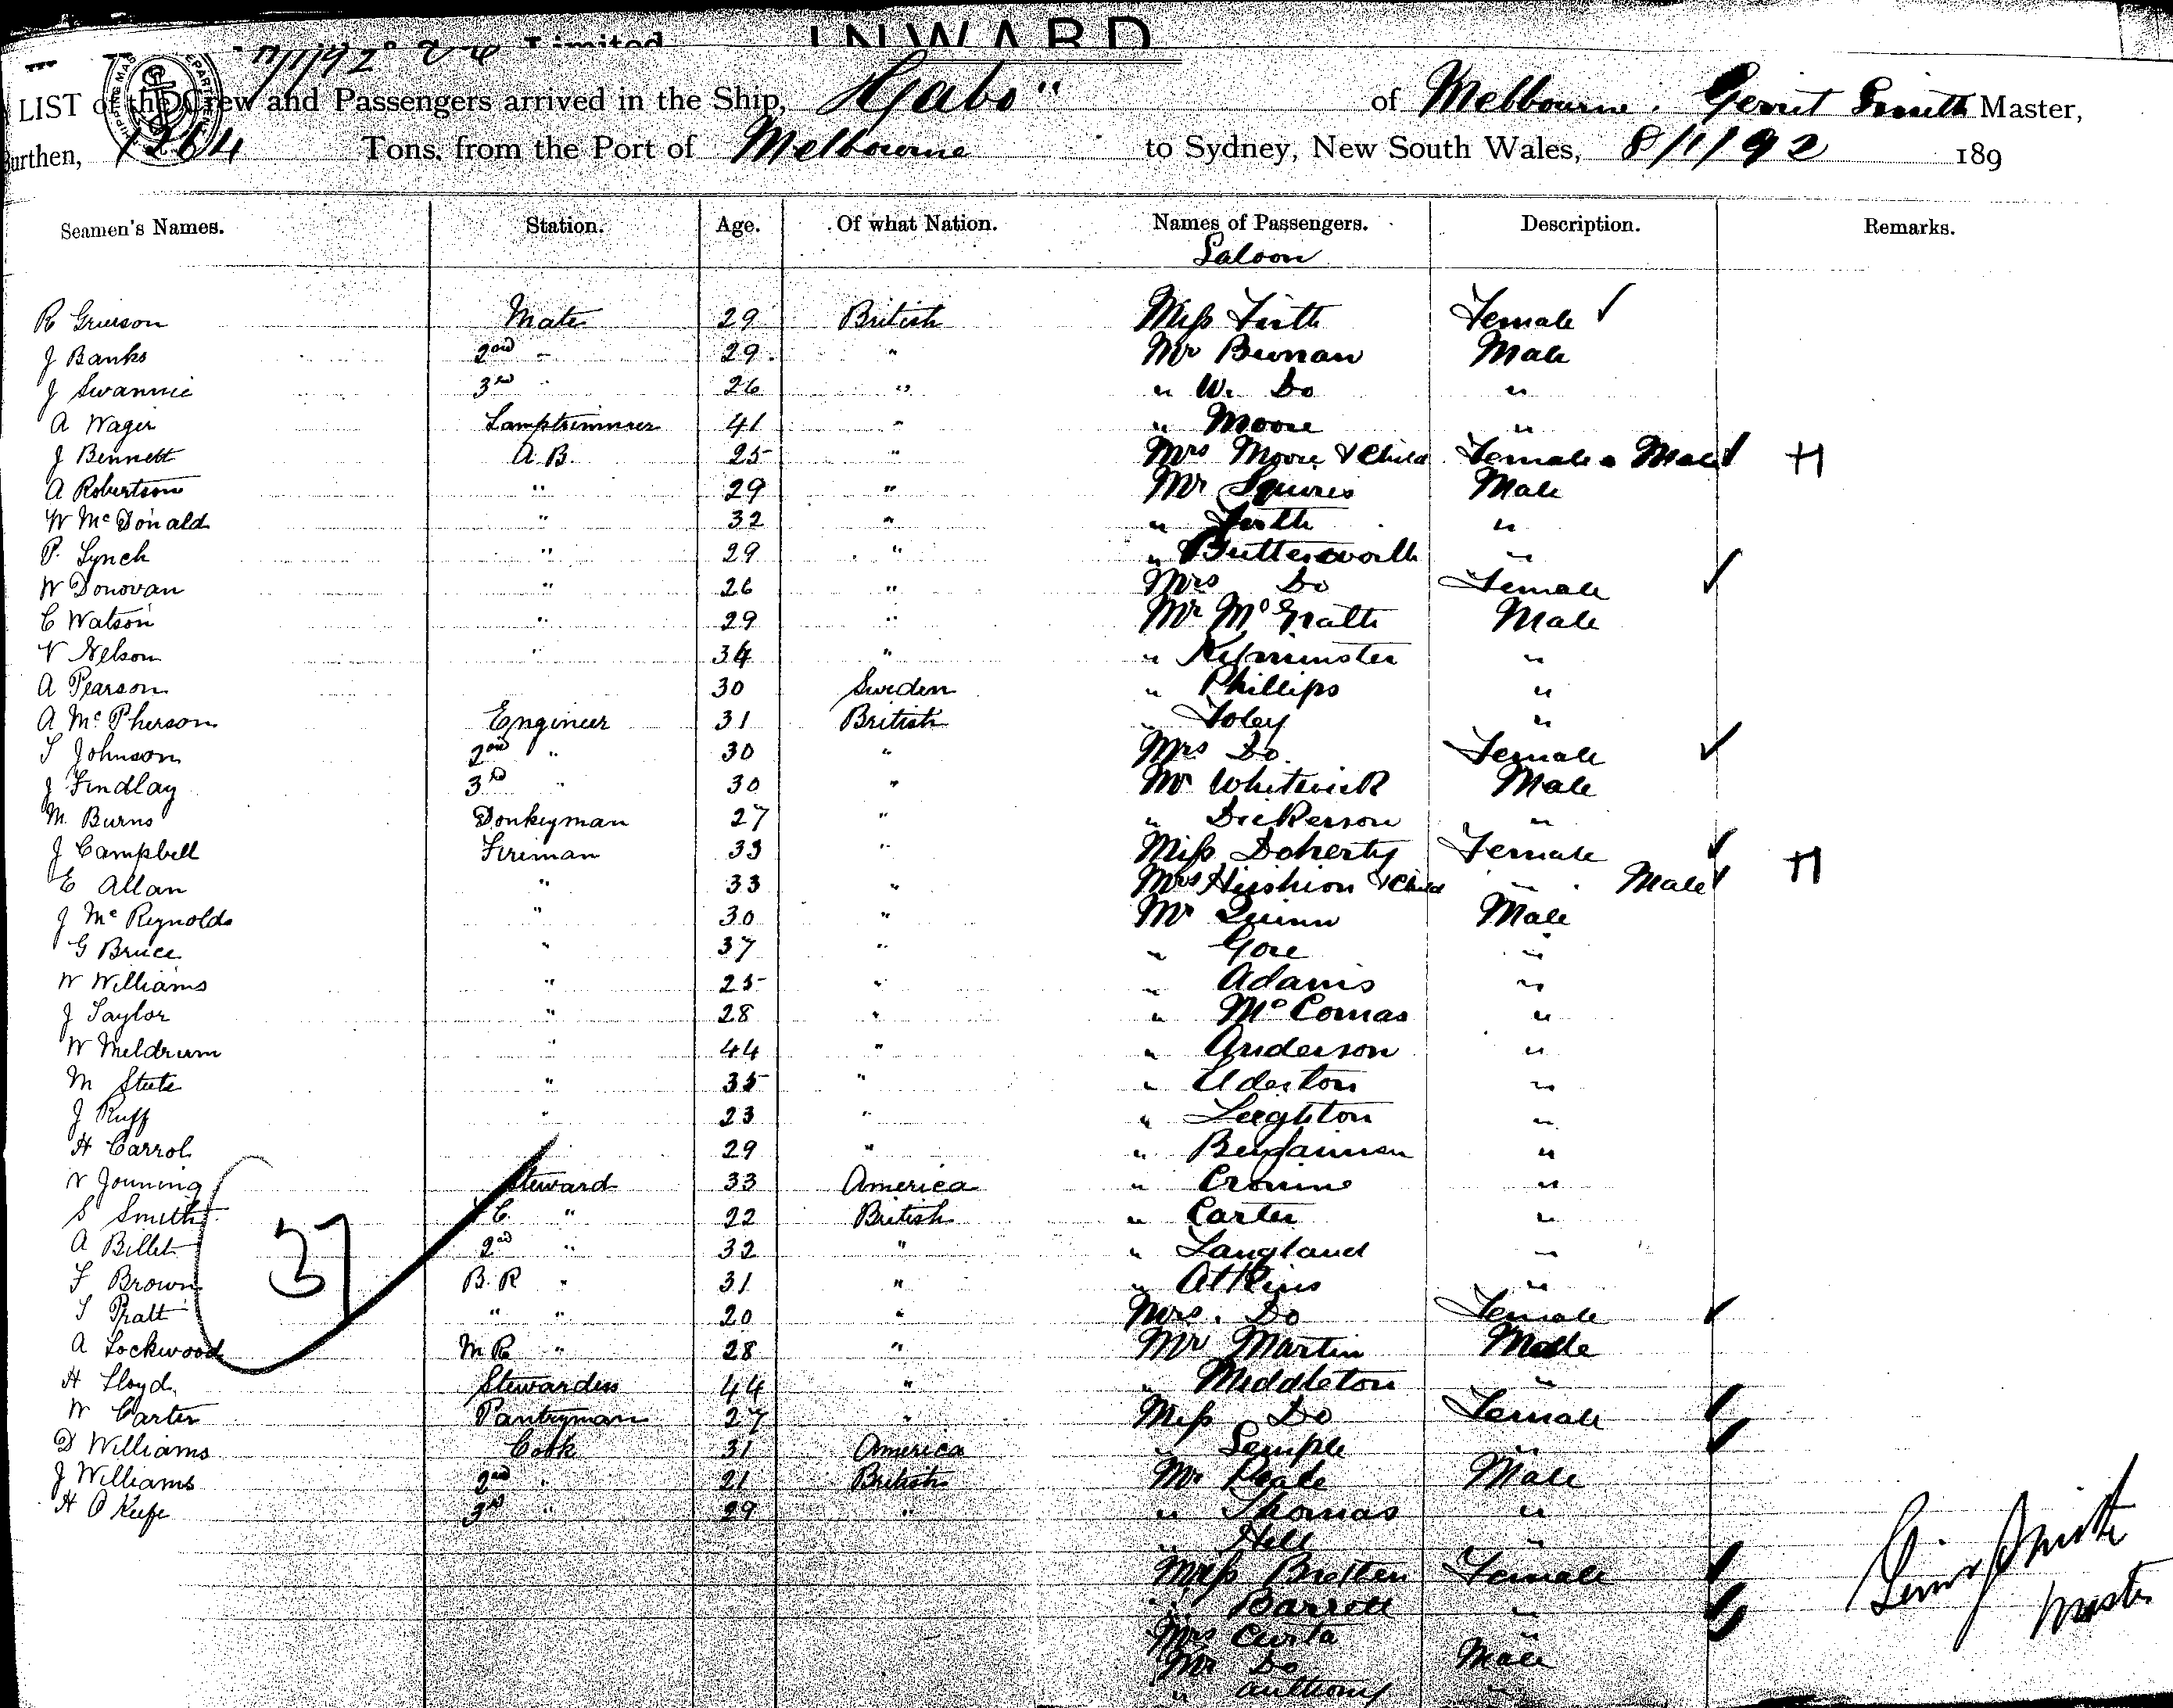 Limited INWARD
LIST of the Crew and Passengers arrived in the Ship, "Gabo" of Melbourne. Gerrit Smith Master,
Burthen, 1264 Tons, from the Port of Melbourne to Sydney, New South Wales, 8/1/92 189
Seamen's Names. Station. Age. Of what Nation. Names of Passengers. Description. Remarks.
Saloon
R Grierson Mate 29 British Miss Firth Female ✓
J Banks 2nd " 29 " Mr Beenan Male
J Swannie 3rd " 26 " " W. Do "
A Wager Lamptrimmer 41 " " Moore "
J Bennett A.B. 25 " Mrs Moore & Child Female & Male ✓ H
A Robertson " 29 " Mr Squires Male
W McDonald " 32 " " Firth "
P. Lynch " 29 " " Buttersworth "
W Donovan " 26 " Mrs Do Female ✓
C Watson " 29 " Mr McGrath Male
N Nelson " 34 " " Kepminster "
A Pearson 30 Sweden " Phillips "
A McPherson Engineer 31 British " Foley "
T Johnson 2nd " 30 " Mrs Do Female ✓
J Findlay 3rd " 30 " Mr Whitwick Male
M Burns Donkeyman 27 " " Dickerson "
J Campbell Fireman 33 " Miss Doherty Female ✓
E Allan " 33 " Mrs Hishion & Child " Male ✓ H
J McReynolds " 30 " Mr Quinn Male
G Bruce " 37 " " Gore "
W Williams " 25 " " Adams "
J Taylor " 28 " " McComas "
W Meldrum " 44 " " Anderson "
M Steele " 35 " " Elderton "
J Ruff " 23 " " Leighton "
H Carrol 29 " " Benjamien "
N Jouning Steward 33 America " Cronine "
S Smith C. " 22 British " Carter "
A Billet 2nd " 32 " " Langland "
F Brown B.R " 31 " " Atkins "
T Pratt " " 20 " Mrs. Do Female ✓
A Lockwood M R " 28 " Mr Martin Male
H Lloyd Stewardess 44 " " Middleton "
W Carter Pantryman 27 " Miss Do Female ✓
D Williams Cook 31 America " Semple " ✓
J Williams 2nd " 21 British Mr Peale Male
H O'Keefe 3rd " 29 " " Thomas "
" Hill "
Miss Bretten Female ✓
" Barrett " ✓
Mrs Curta " ✓
Mr Do Male
" Anthony "
37
Gerrit Smith
Master